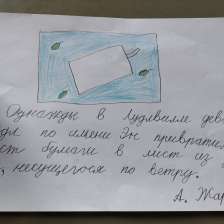 Однажды в Лудвилле дев
по имени Эн превратил
ст бумаги в лист из
несущегося по ветру.
А. Жар